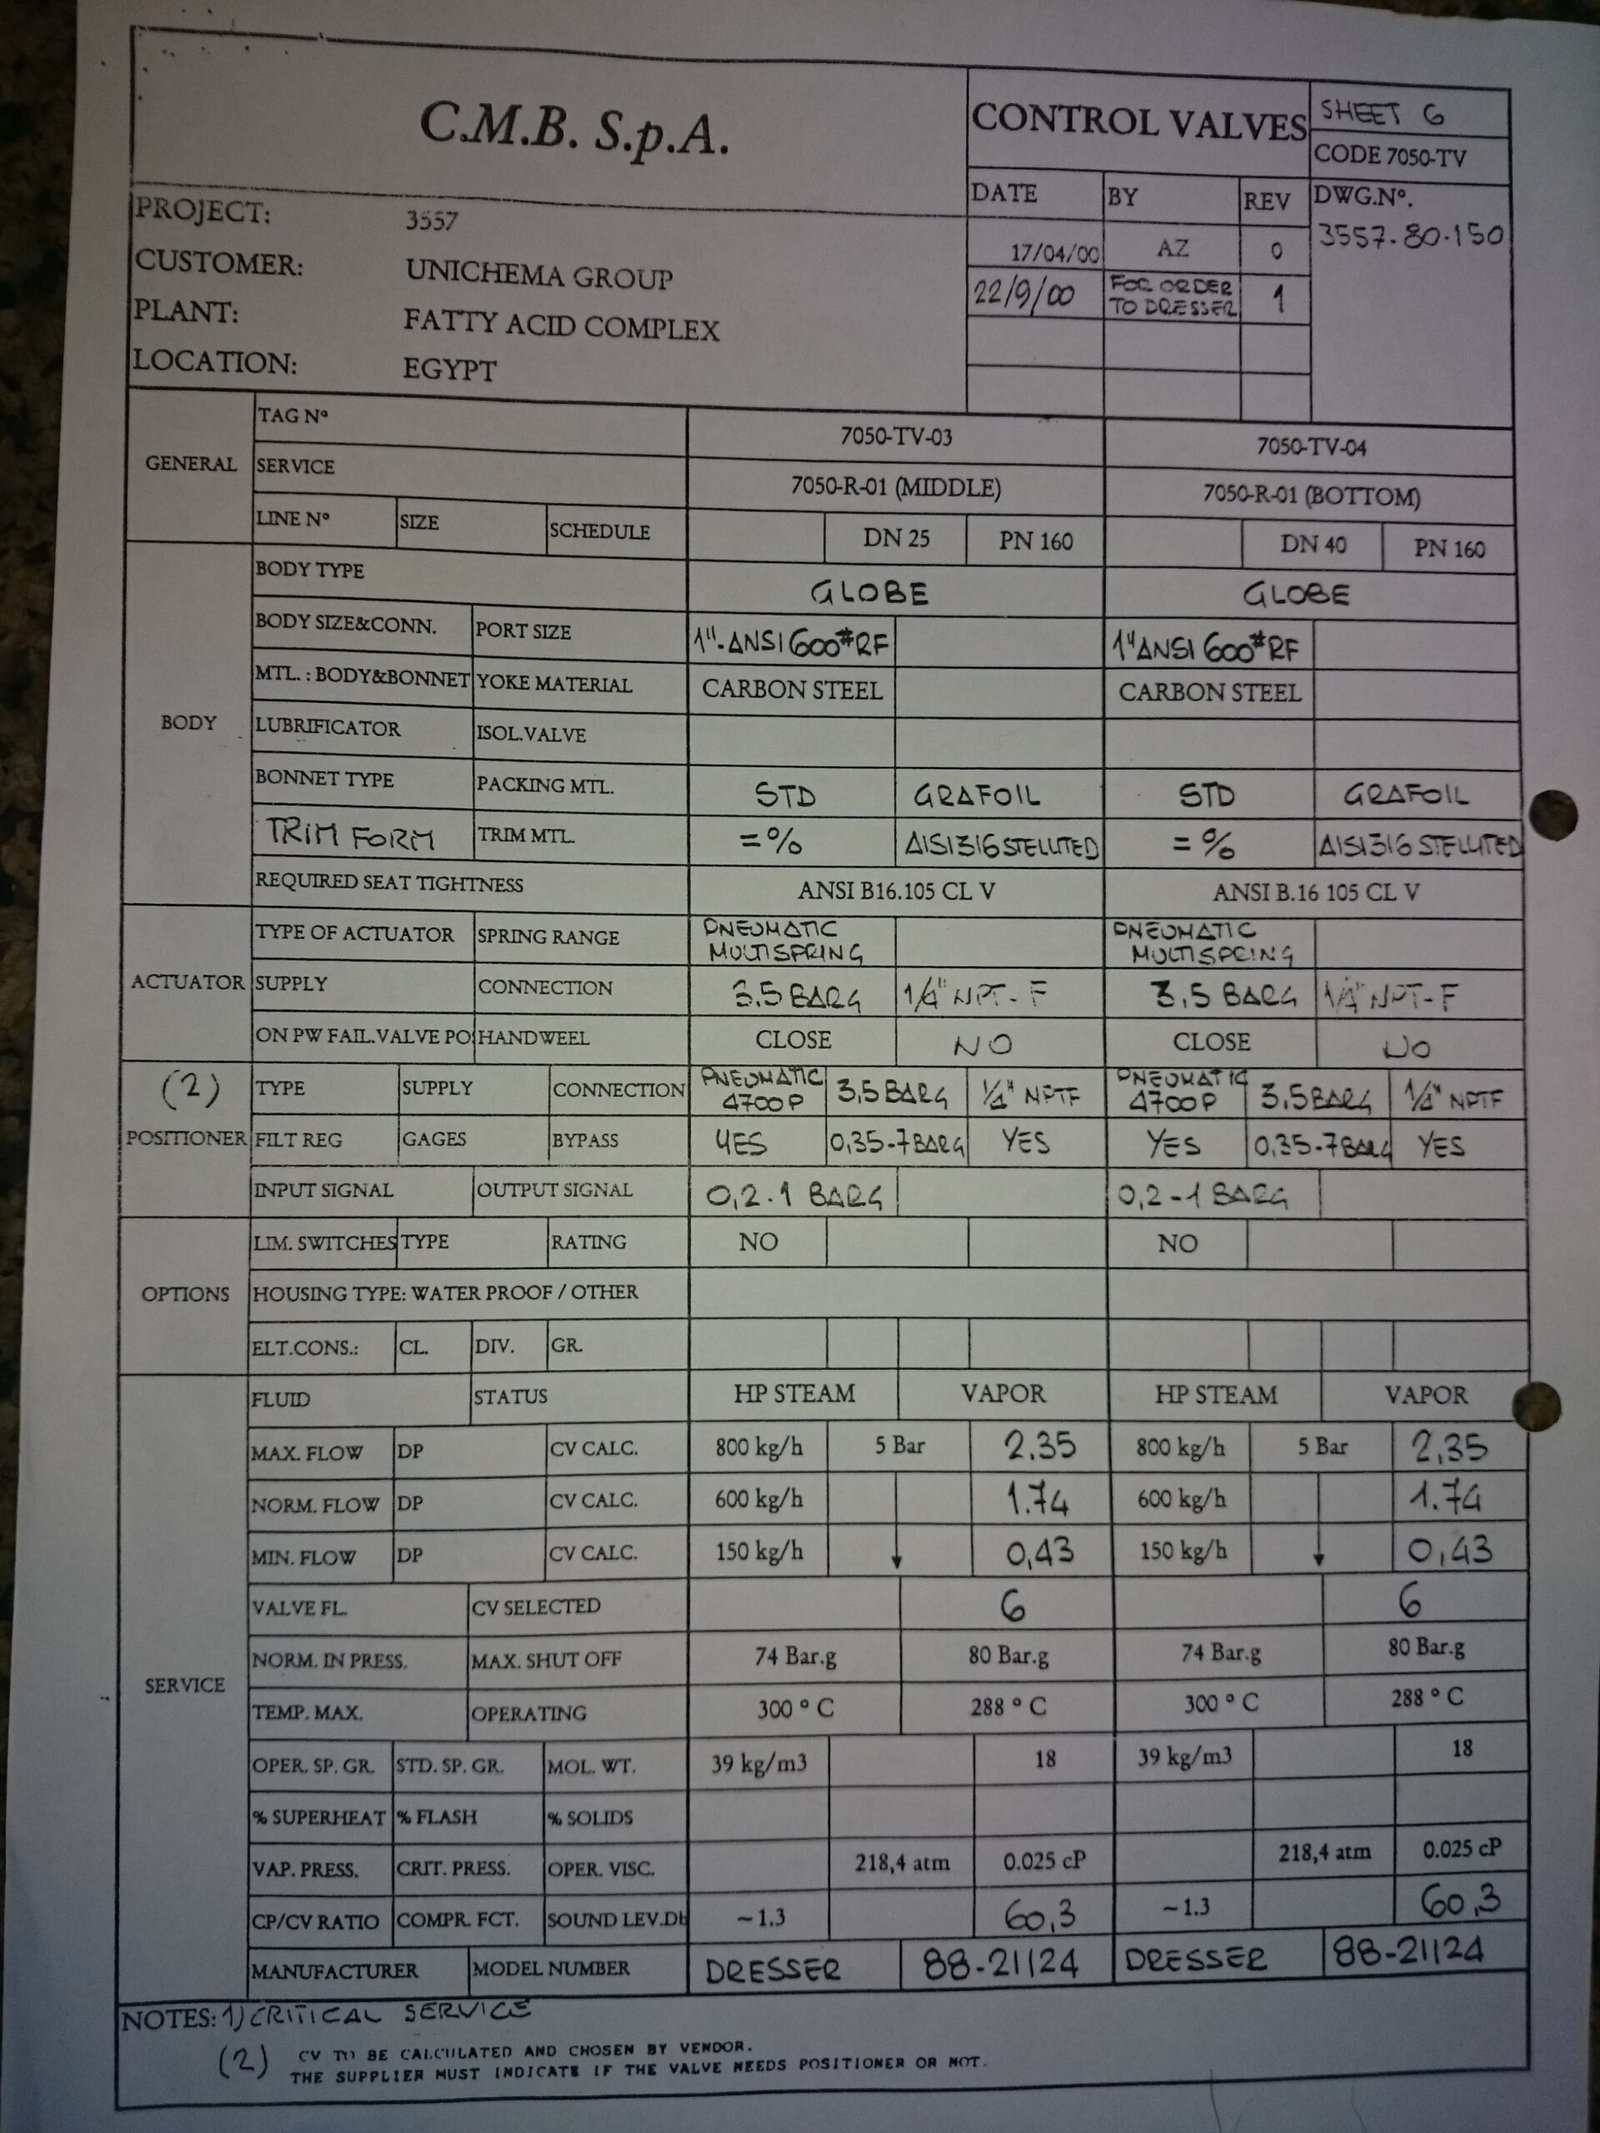 C.M.B. S.p.A.
CONTROL VALVES
SHEET 6
CODE 7050-TV
DATE BY REV DWG.Nº.
3557.80.150
17/04/00 AZ 0
22/9/00 FOR ORDER TO DRESSER 1
PROJECT: 3557
CUSTOMER: UNICHEMA GROUP
PLANT: FATTY ACID COMPLEX
LOCATION: EGYPT
GENERAL
TAG Nº 7050-TV-03 7050-TV-04
SERVICE 7050-R-01 (MIDDLE) 7050-R-01 (BOTTOM)
LINE Nº SIZE SCHEDULE DN 25 PN 160 DN 40 PN 160
BODY
BODY TYPE GLOBE GLOBE
BODY SIZE&CONN. PORT SIZE 1"-ANSI 600#RF 1" ANSI 600#RF
MTL. : BODY&BONNET YOKE MATERIAL CARBON STEEL CARBON STEEL
LUBRIFICATOR ISOL.VALVE
BONNET TYPE PACKING MTL. STD GRAFOIL STD GRAFOIL
TRIM FORM TRIM MTL. =% AISI316 STELLITED =% AISI316 STELLITED
REQUIRED SEAT TIGHTNESS ANSI B16.105 CL V ANSI B.16 105 CL V
ACTUATOR
TYPE OF ACTUATOR SPRING RANGE PNEUMATIC MULTISPRING PNEUMATIC MULTISPRING
SUPPLY CONNECTION 3.5 BARG 1/4" NPT-F 3,5 BARG 1/4" NPT-F
ON PW FAIL.VALVE PO HANDWEEL CLOSE NO CLOSE NO
(2)
POSITIONER
TYPE SUPPLY CONNECTION PNEUMATIC 4700P 3,5 BARG 1/4" NPTF PNEUMATIC 4700P 3,5 BARG 1/4" NPTF
FILT REG GAGES BYPASS YES 0,35-7 BARG YES YES 0,35-7 BARG YES
INPUT SIGNAL OUTPUT SIGNAL 0,2-1 BARG 0,2-1 BARG
OPTIONS
LIM. SWITCHES TYPE RATING NO NO
HOUSING TYPE: WATER PROOF / OTHER
ELT.CONS.: CL. DIV. GR.
SERVICE
FLUID STATUS HP STEAM VAPOR HP STEAM VAPOR
MAX. FLOW DP CV CALC. 800 kg/h 5 Bar 2.35 800 kg/h 5 Bar 2,35
NORM. FLOW DP CV CALC. 600 kg/h 1.74 600 kg/h 1.74
MIN. FLOW DP CV CALC. 150 kg/h 0,43 150 kg/h 0,43
VALVE FL. CV SELECTED 6 6
NORM. IN PRESS. MAX. SHUT OFF 74 Bar.g 80 Bar.g 74 Bar.g 80 Bar.g
TEMP. MAX. OPERATING 300 º C 288 º C 300 º C 288 º C
OPER. SP. GR. STD. SP. GR. MOL. WT. 39 kg/m3 18 39 kg/m3 18
% SUPERHEAT % FLASH % SOLIDS
VAP. PRESS. CRIT. PRESS. OPER. VISC. 218,4 atm 0.025 cP 218,4 atm 0.025 cP
CP/CV RATIO COMPR. FCT. SOUND LEV.Db ~1.3 60,3 ~1.3 60,3
MANUFACTURER MODEL NUMBER DRESSER 88-21124 DRESSER 88-21124
NOTES: 1) CRITICAL SERVICE
(2) CV TO BE CALCULATED AND CHOSEN BY VENDOR.
THE SUPPLIER MUST INDICATE IF THE VALVE NEEDS POSITIONER OR NOT.